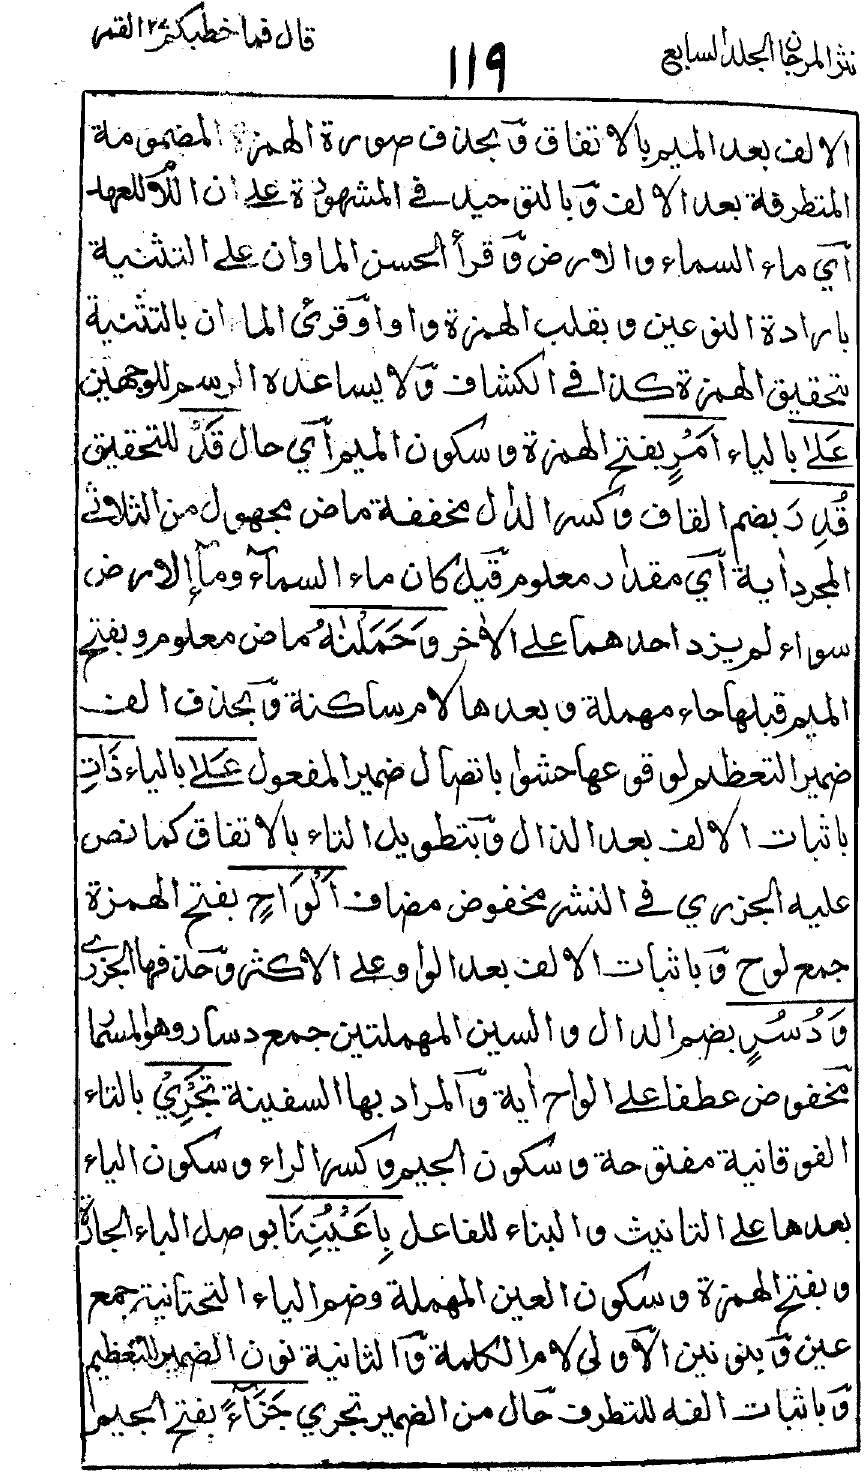 نثر المرجان الجلد السابع
١١٩
قال فما خطبكم ٢٧ القمر
الالف بعد الميم بالاتفاق وبحذف صورة الهمزة المضمومة
المتطرفة بعد الالف وبالتوحيد في المشهورة على ان اللام للعهد
أي ماء السماء والارض وقرأ الحسن الماوان على التثنية
بارادة النوعين وبقلب الهمزة واوا وقرئ الماءان بالتثنية
بتحقيق الهمزة كذا في الكشاف ولا يساعده الرسم للوجهين
عَلىٰ بالياء اَمْرٍ بفتح الهمزة وسكون الميم أي حال قَدْ للتحقيق
قُدِرَ بضم القاف وكسر الدال مخففة ماض مجهول من الثلاثي
المجرد أية أي مقدار معلوم قيل كان ماء السماء وماء الارض
سواء لم يزد احدهما على الاٰخر وَحَمَلْنٰهُ ماض معلوم وبفتح
الميم قبلها حاء مهملة وبعدها لام ساكنة وبحذف الف
ضمير التعظيم لوقوعها حشوا باتصال ضمير المفعول عَلىٰ بالياء ذَاتِ
باثبات الالف بعد الذال وبتطويل التاء بالاتفاق كما نص
عليه الجزري في النشر مخفوض مضاف اَلْوَاحٍ بفتح الهمزة
جمع لوح وباثبات الالف بعد الواو على الاكثر وحذفها الجزري
وَدُسُرٍ بضم الدال والسين المهملتين جمع دسار وهو المسمار
مخفوض عطفا على الواح أية والمراد بها السفينة تَجْرِيْ بالتاء
الفوقانية مفتوحة وسكون الجيم وكسر الراء وسكون الياء
بعدها على التانيث والبناء للفاعل بِاَعْيُنِنَا بوصل الباء الجارة
وبفتح الهمزة وسكون العين المهملة وضم الياء التحتانية جمع
عين وبنونين الاولى لام الكلمة والثانية نون الضمير للتعظيم
وباثبات الفه للتطرف حال من الضمير تجري جَزَآءً بفتح الجيم